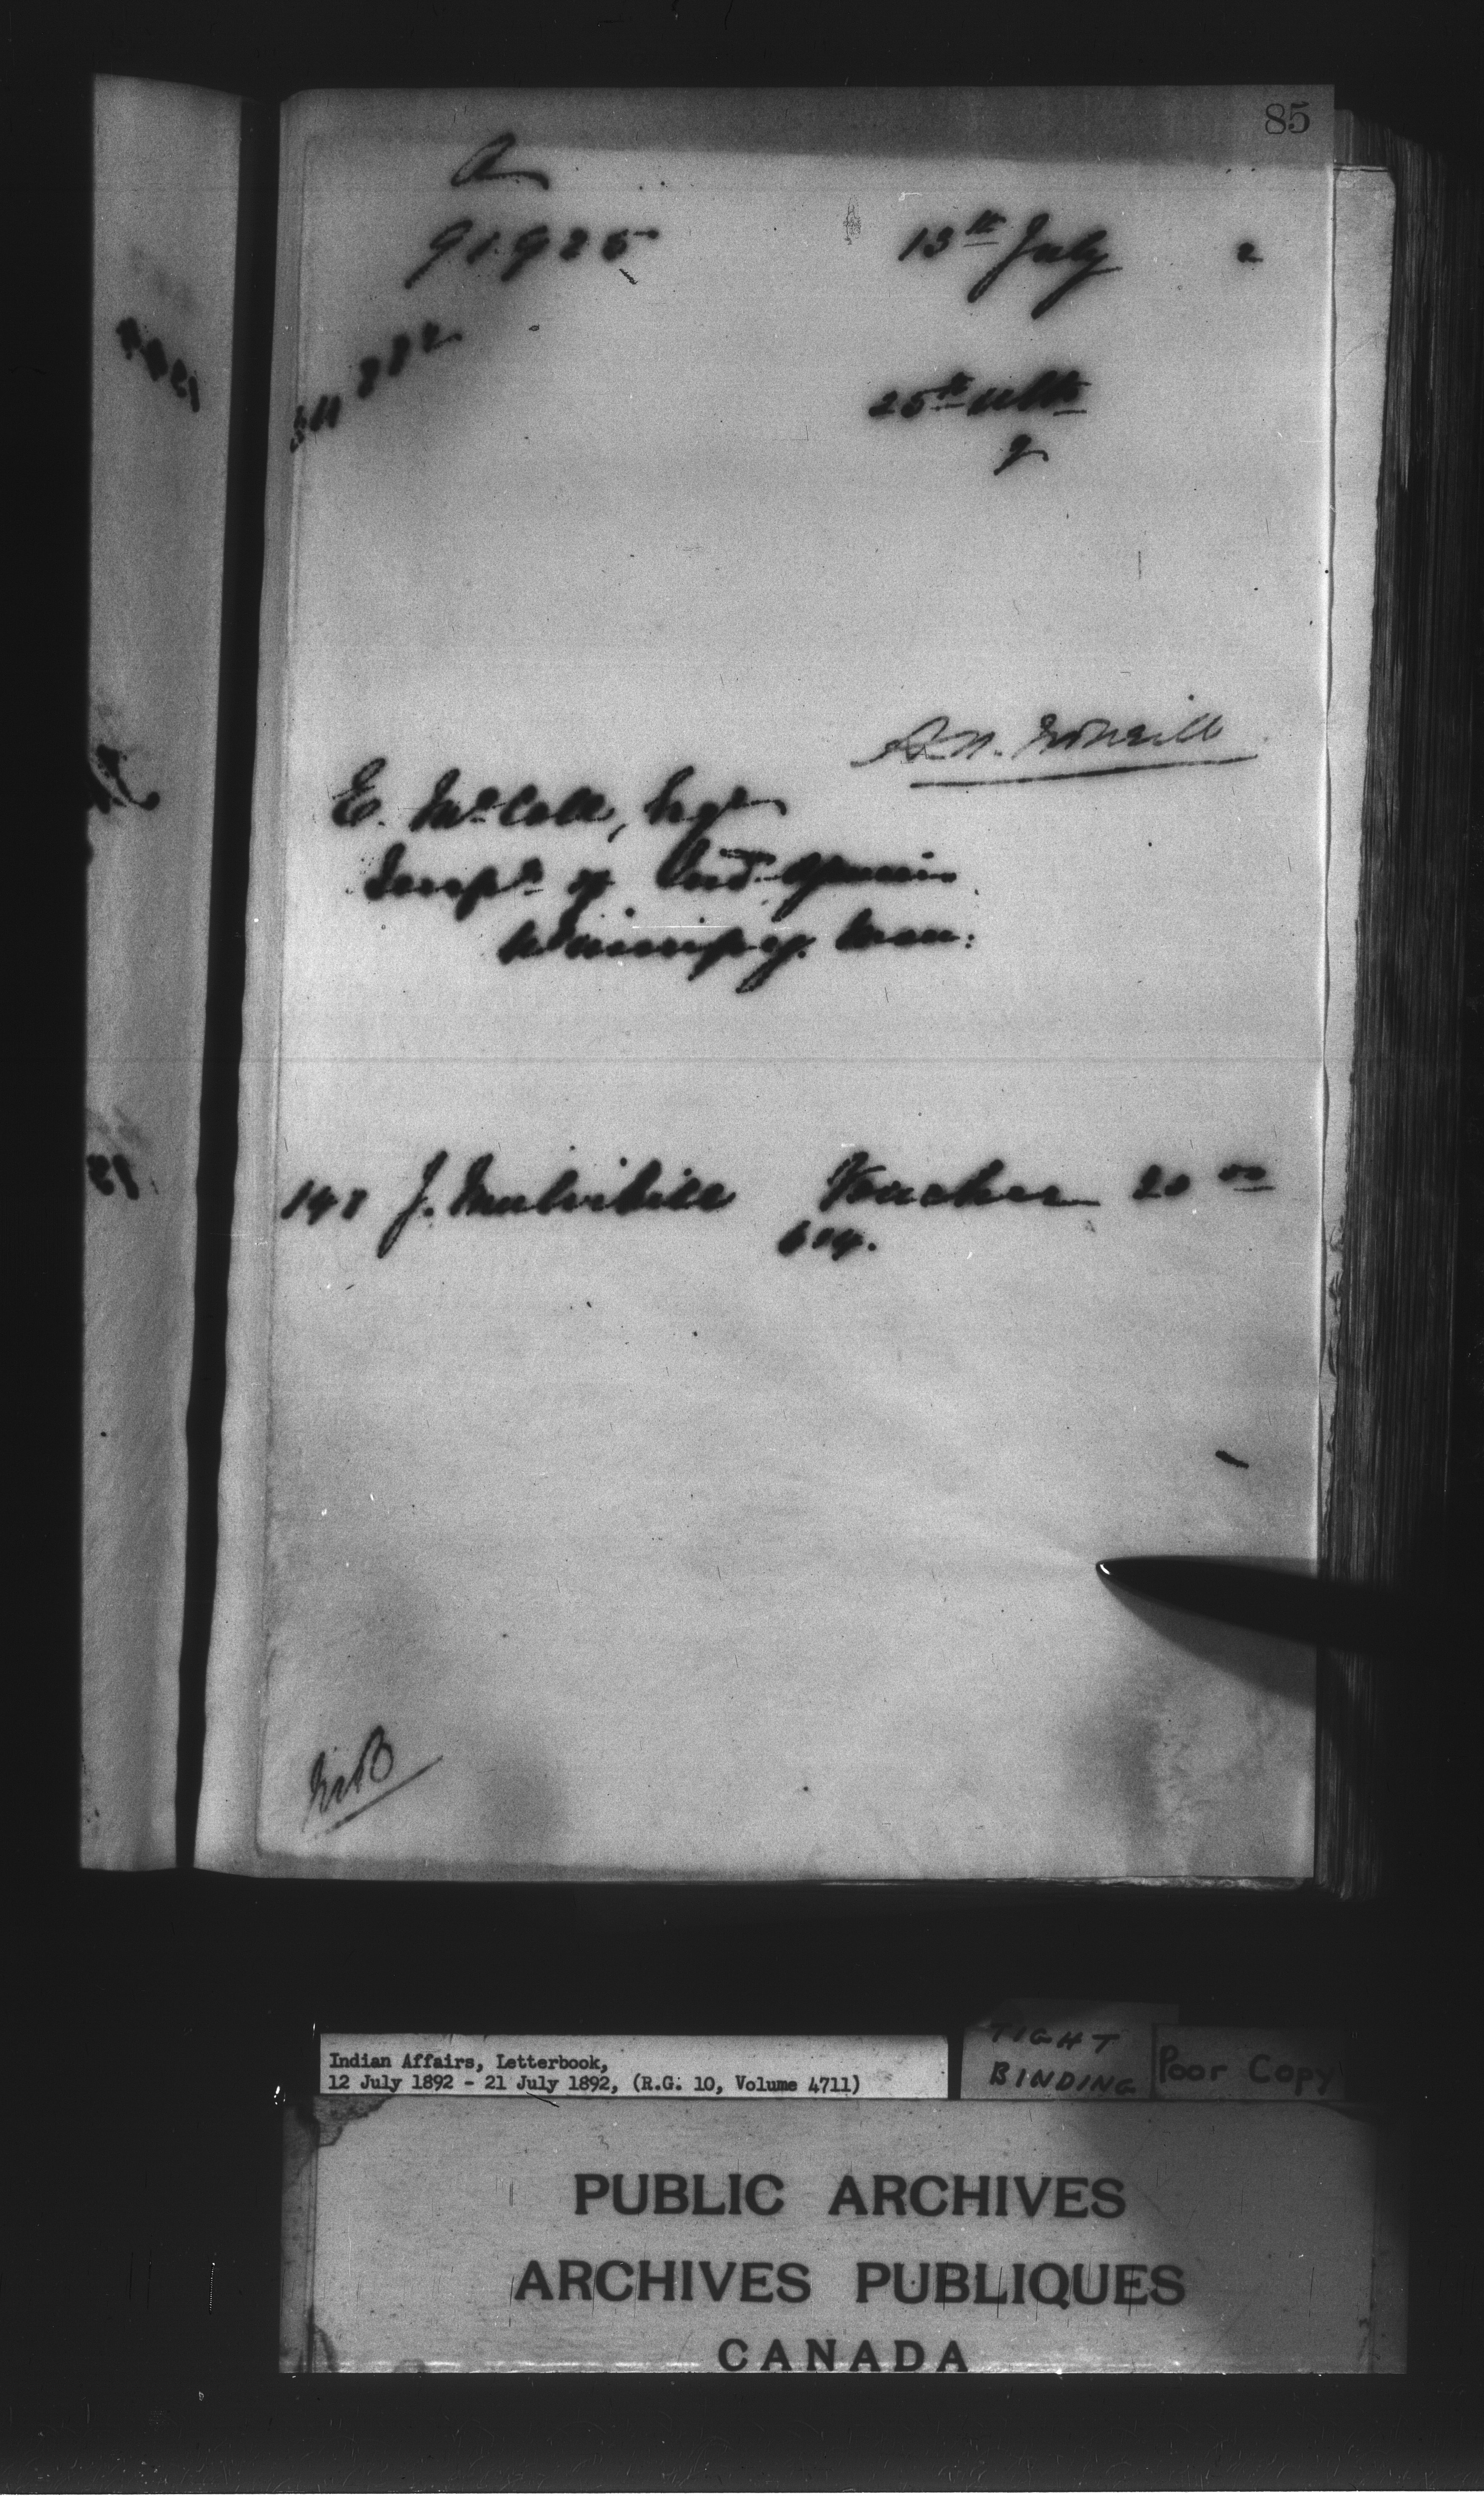 85
A
91925
13th July 2
311 882
25th ulto
E. McColl, Esqr
Inspr of Ind. Agencies
Winnipeg. Man:
147 J. Mulvihill Voucher 20 00
614.
Indian Affairs, Letterbook,
12 July 1892 - 21 July 1892, (R.G. 10, Volume 4711)
TIGHT
BINDING
Poor Copy
PUBLIC ARCHIVES
ARCHIVES PUBLIQUES
CANADA